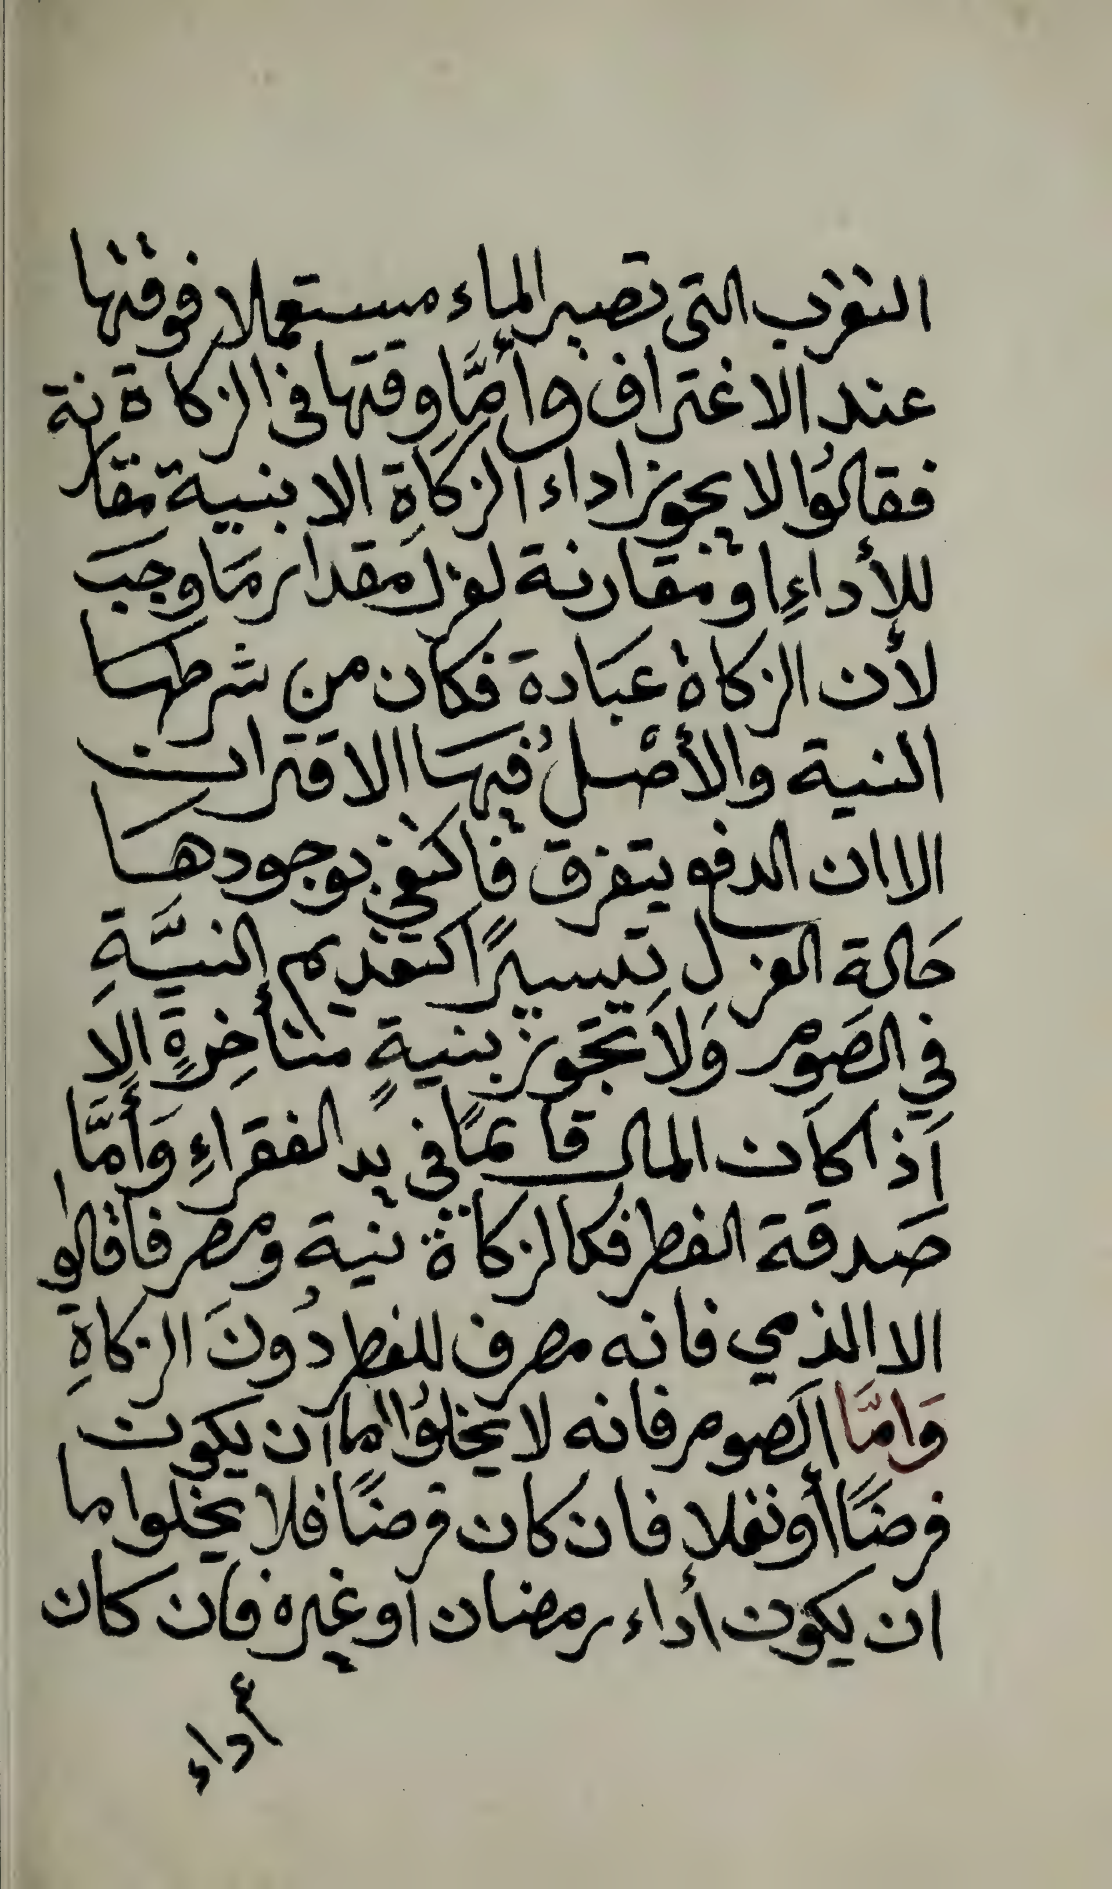 التقرب التي تصير الماء مستعملا فوقتها
عند الاغتراف وأمَّا وقتها في الزكاة
فقالوُا لا يجوز اداء الزكاةِ الا بنية مقارنة
للأداءِ او مقارنة لعزل مقدار مَا وجبَ
لأن الزكاة عبَادة فكان من شرطهَا
النية والأصْلُ فيهَا الاقتران
الا ان الدفع يتفرق فاكتفي بوجودهَا
حَالة العزل تيسيرًا كتقديم النيَّةِ
في الصَومِ وَلاَ تجَوز بنيةٍ متأخِرةٍ الا
إَذا كاَن المال قائمًا في يد الفقراءِ وَأَمَّا
صَدقة الفطر فكالزكاة نية ومصرفا قالوا
الا الذمي فانه مصرف للفطر دُونَ الزكاةِ
وَامَّا الصَوم فانه لا يخلوُا اما ان يكون
فرضًا أو نفلا فان كان فرضًا فلا يخلوا اما
ان يكون أداء رمضان او غيره فان كان
أداء